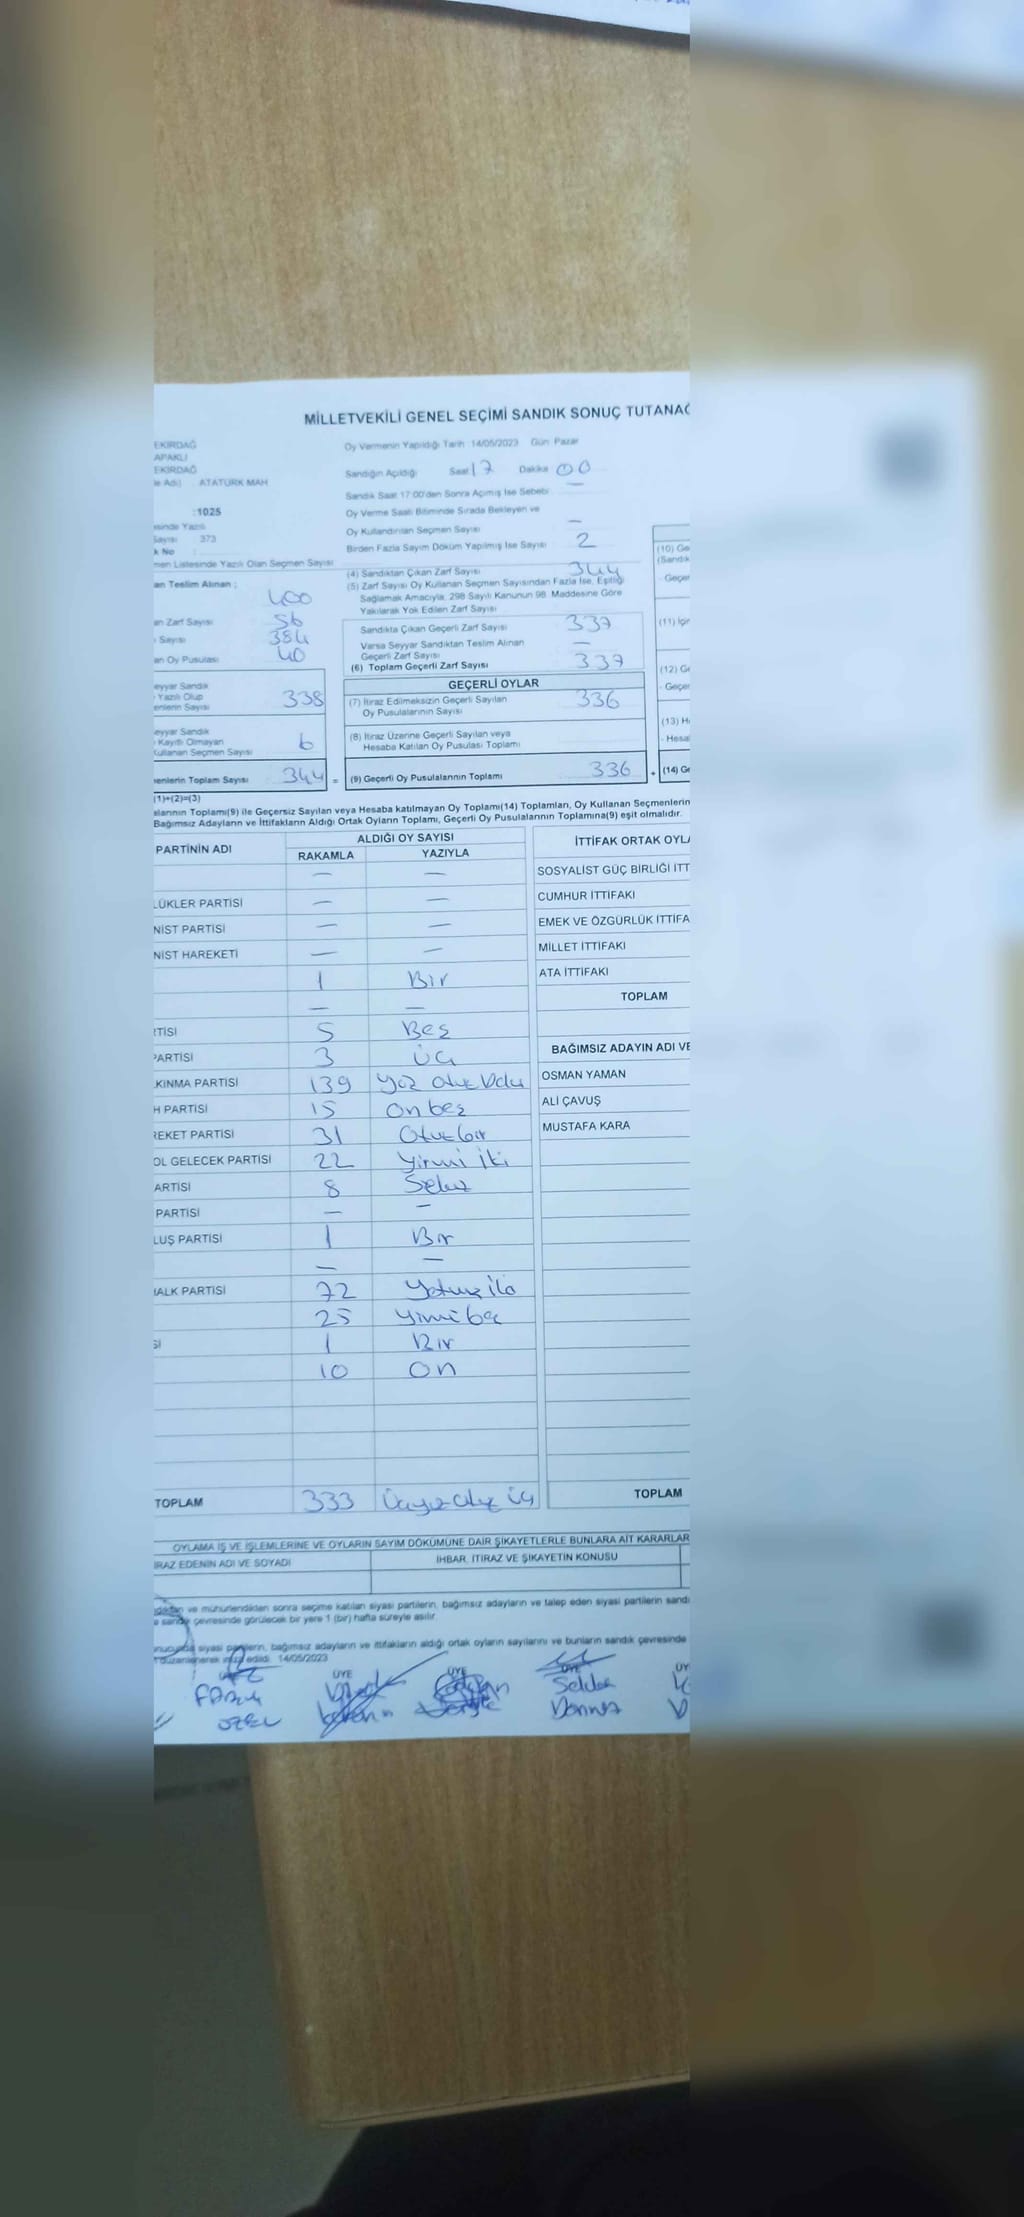 MİLLETVEKİLİ GENEL SEÇİMİ SANDIK SONUÇ TUTANAĞ
EKİRDAĞ
APAKLI
EKİRDAĞ
le Adı : ATATÜRK MAH
:1025
esinde Yazılı
Sayısı 373
k No :
men Listesinde Yazılı Olan Seçmen Sayısı
an Teslim Alınan ;
400
an Zarf Sayısı 56
Sayısı 384
an Oy Pusulası 40
eyyar Sandık
Yazılı Olup
enlerin Sayısı 338
eyyar Sandık
Kayıtlı Olmayan
Kullanan Seçmen Sayısı 6
enlerin Toplam Sayısı 344 =
Oy Vermenin Yapıldığı Tarih :14/05/2023 Gün: Pazar
Sandığın Açıldığı Saat 17 Dakika 00
Sandık Saat 17:00'den Sonra Açımış İse Sebebi —
Oy Verme Saati Bitiminde Sırada Bekleyen ve
Oy Kullandırılan Seçmen Sayısı —
Birden Fazla Sayım Döküm Yapılmış İse Sayısı 2
(4) Sandıktan Çıkan Zarf Sayısı 344
(5) Zarf Sayısı Oy Kullanan Seçmen Sayısından Fazla İse, Eşitliği
Sağlamak Amacıyla, 298 Sayılı Kanunun 98. Maddesine Göre
Yakılarak Yok Edilen Zarf Sayısı
Sandıkta Çıkan Geçerli Zarf Sayısı 337
Varsa Seyyar Sandıktan Teslim Alınan
Geçerli Zarf Sayısı —
(6) Toplam Geçerli Zarf Sayısı 337
GEÇERLİ OYLAR
(7) İtiraz Edilmeksizin Geçerli Sayılan
Oy Pusulalarının Sayısı 336
(8) İtiraz Üzerine Geçerli Sayılan veya
Hesaba Katılan Oy Pusulası Toplamı
(9) Geçerli Oy Pusulalarının Toplamı 336 +
(10) Ge
(Sandık
- Geçer
(11) İçir
(12) Ge
- Geçer
(13) H
- Hesa
(14) Ge
(1)+(2)=(3)
alarının Toplamı(9) ile Geçersiz Sayılan veya Hesaba katılmayan Oy Toplamı(14) Toplamları, Oy Kullanan Seçmenlerin
Bağımsız Adayların ve İttifakların Aldığı Ortak Oyların Toplamı, Geçerli Oy Pusulalarının Toplamına(9) eşit olmalıdır.
PARTİNİN ADI ALDIĞI OY SAYISI
RAKAMLA YAZIYLA
— —
LÜKLER PARTİSİ — —
NİST PARTİSİ — —
NİST HAREKETİ — —
1 Bir
— —
RTİSİ 5 Beş
PARTİSİ 3 Üç
KINMA PARTİSİ 139 Yüz otuz
H PARTİSİ 15 On beş
REKET PARTİSİ 31 Otuz bir
OL GELECEK PARTİSİ 22 Yirmi iki
ARTİSİ 8 Sekiz
PARTİSİ — —
LUŞ PARTİSİ 1 Bir
— —
HALK PARTİSİ 72 Yetmiş iki
25 Yirmi beş
Sİ 1 Bir
10 On
TOPLAM 333 Üçyüz otuz üç
İTTİFAK ORTAK OYLA
SOSYALİST GÜÇ BİRLİĞİ İTT
CUMHUR İTTİFAKI
EMEK VE ÖZGÜRLÜK İTTİFA
MİLLET İTTİFAKI
ATA İTTİFAKI
TOPLAM
BAĞIMSIZ ADAYIN ADI VE
OSMAN YAMAN
ALİ ÇAVUŞ
MUSTAFA KARA
TOPLAM
OYLAMA İŞ VE İŞLEMLERİNE VE OYLARIN SAYIM DÖKÜMÜNE DAİR ŞİKAYETLERLE BUNLARA AİT KARARLAR
İRAZ EDENİN ADI VE SOYADI İHBAR, İTİRAZ VE ŞİKAYETİN KONUSU
ve mühürlendikten sonra seçime katılan siyasi partilerin, bağımsız adayların ve talep eden siyasi partilerin sandı
sandık çevresinde görülecek bir yere 1 (bir) hafta süreyle asılır.
siyasi partilerin, bağımsız adayların ve ittifakların aldığı ortak oyların sayılarını ve bunların sandık çevresinde
düzenlenerek imza edildi. 14/05/2023
ÜYE ÜYE ÜYE ÜY
FARUK
ÖZEL